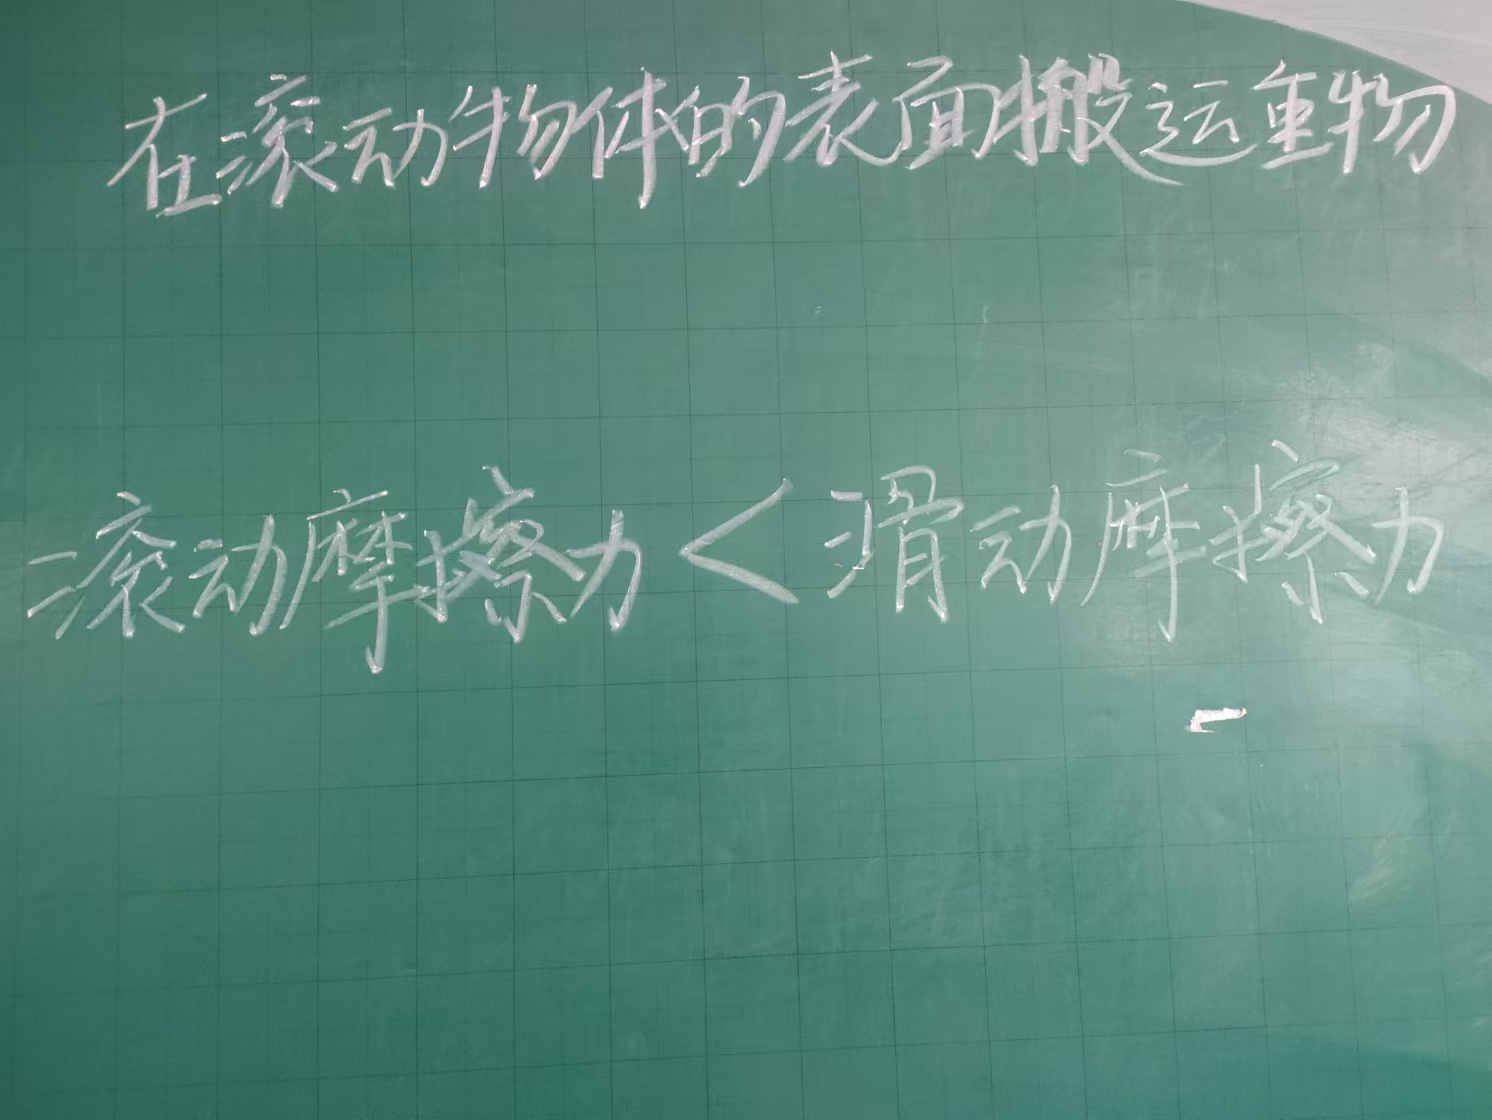 在滚动物体的表面搬运重物
滚动摩擦力<滑动摩擦力